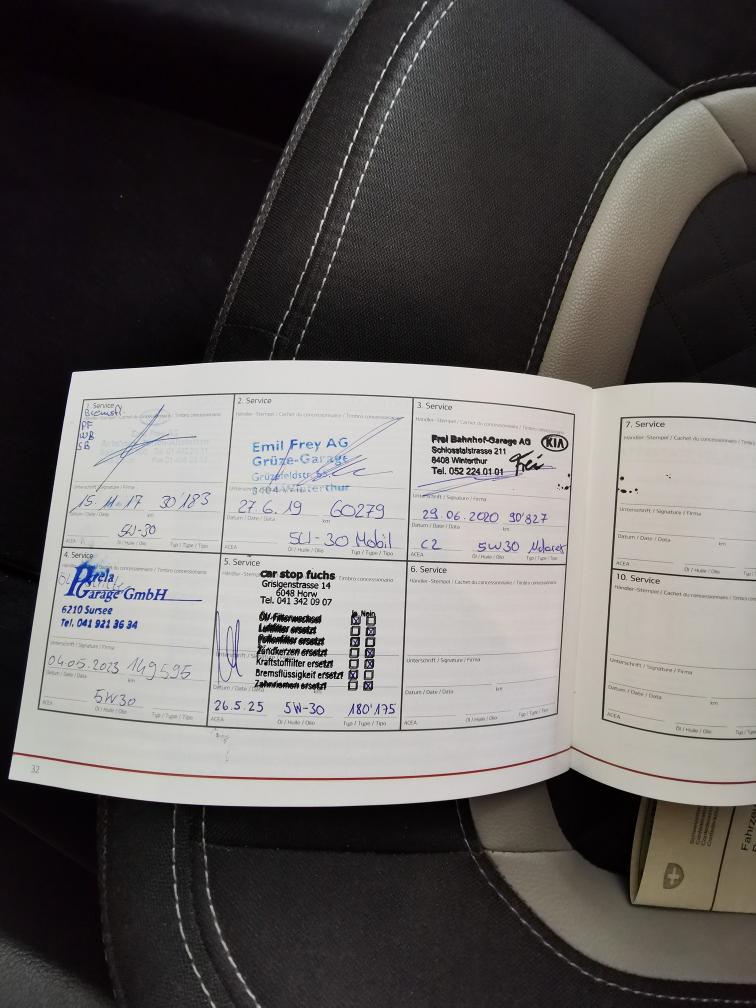 1. Service
Bremsfl.
PF
WB
SB
Händler-Stempel / Cachet du concessionnaire / Timbro concessionario
Unterschrift / Signature / Firma
15.11.17 30'183
Datum / Date / Data km
5W-30
ACEA Öl / Huile / Olio Typ / Type / Tipo
2. Service
Händler-Stempel / Cachet du concessionnaire / Timbro concessionario
Emil Frey AG
Grüze-Garage
Grüzefeldstr. 65
8404 Winterthur
27.6.19 60279
Datum / Date / Data km
5W-30 Mobil
ACEA Öl / Huile / Olio Typ / Type / Tipo
3. Service
Händler-Stempel / Cachet du concessionnaire / Timbro concessionario
Frei Bahnhof-Garage AG KIA
Schlosstalstrasse 211
8408 Winterthur
Tel. 052 224 01 01 Frei
Unterschrift / Signature / Firma
29.06.2020 90'827
Datum / Date / Data km
C2 5W30 Motorex
ACEA Öl / Huile / Olio Typ / Type / Tipo
4. Service
Garage GmbH
6210 Sursee
Tel. 041 921 36 34
Unterschrift / Signature / Firma
04.05.2023 149595
Datum / Date / Data km
5W30
ACEA Öl / Huile / Olio Typ / Type / Tipo
5. Service
car stop fuchs
Timbro concessionario
Grisigenstrasse 14
6048 Horw
Tel. 041 342 09 07
Ja Nein
Öl/-Filterwechsel
Luftfilter ersetzt
Pollenfilter ersetzt
Zündkerzen ersetzt
Kraftstofffilter ersetzt
Bremsflüssigkeit ersetzt
Zahnriemen ersetzt
26.5.25 5W-30 180'175
ACEA Öl / Huile / Olio Typ / Type / Tipo
6. Service
Händler-Stempel / Cachet du concessionnaire / Timbro concessionario
Unterschrift / Signature / Firma
Datum / Date / Data km
ACEA Öl / Huile / Olio Typ / Type / Tipo
32
7. Service
Händler-Stempel / Cachet du concessionnaire / Timbro
Unterschrift / Signature / Firma
Datum / Date / Data km
ACEA Öl / Huile / Olio Typ / Type
10. Service
Händler-Stempel / Cachet du concessionnaire / Timbro
Unterschrift / Signature / Firma
Datum / Date / Data km
ACEA Öl / Huile / Olio Typ / Type